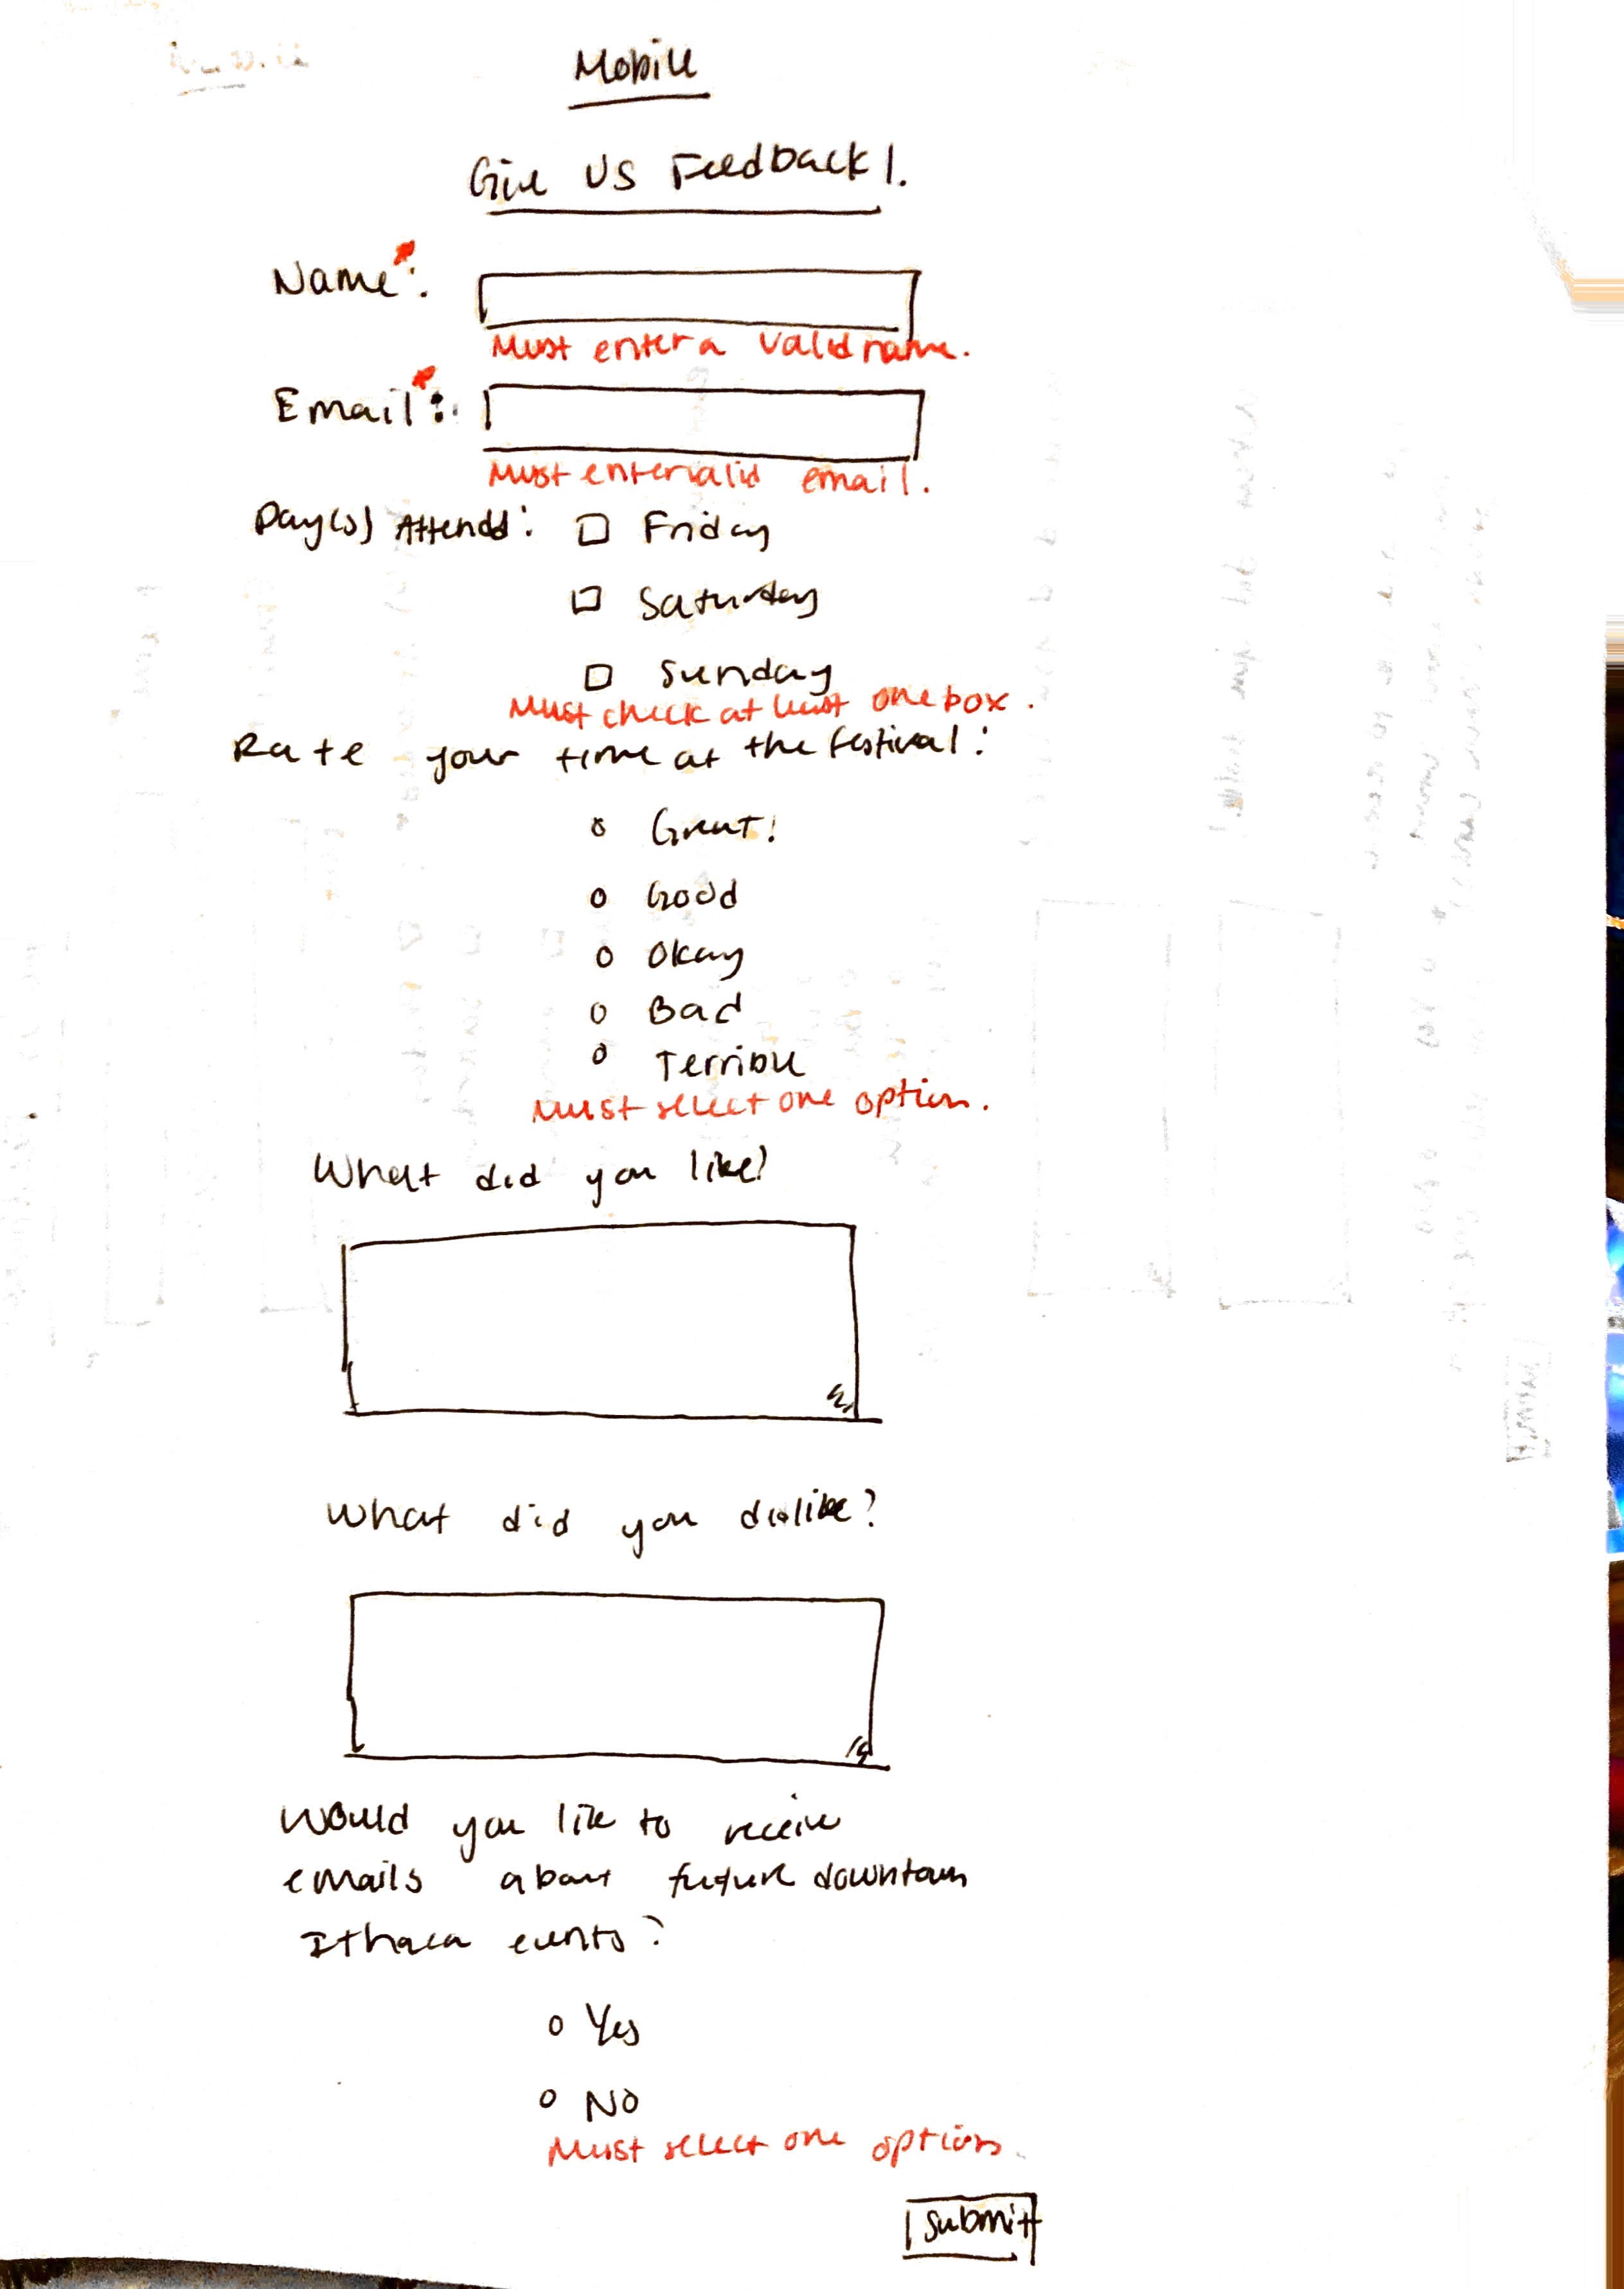 Mobile
Give US Feedback!.
Name*:
Must enter a valid name.
Email*:
Must enter valid email.
Day(s) Attendd: Friday
Saturday
Sunday
Must check at least one box.
Rate your time at the festival:
Great!
Good
Okay
Bad
Terrible
Must select one option.
What did you like?
What did you dislike?
Would you like to receive
emails about future downtown
Ithaca events?
Yes
No
Must select one option.
Submit